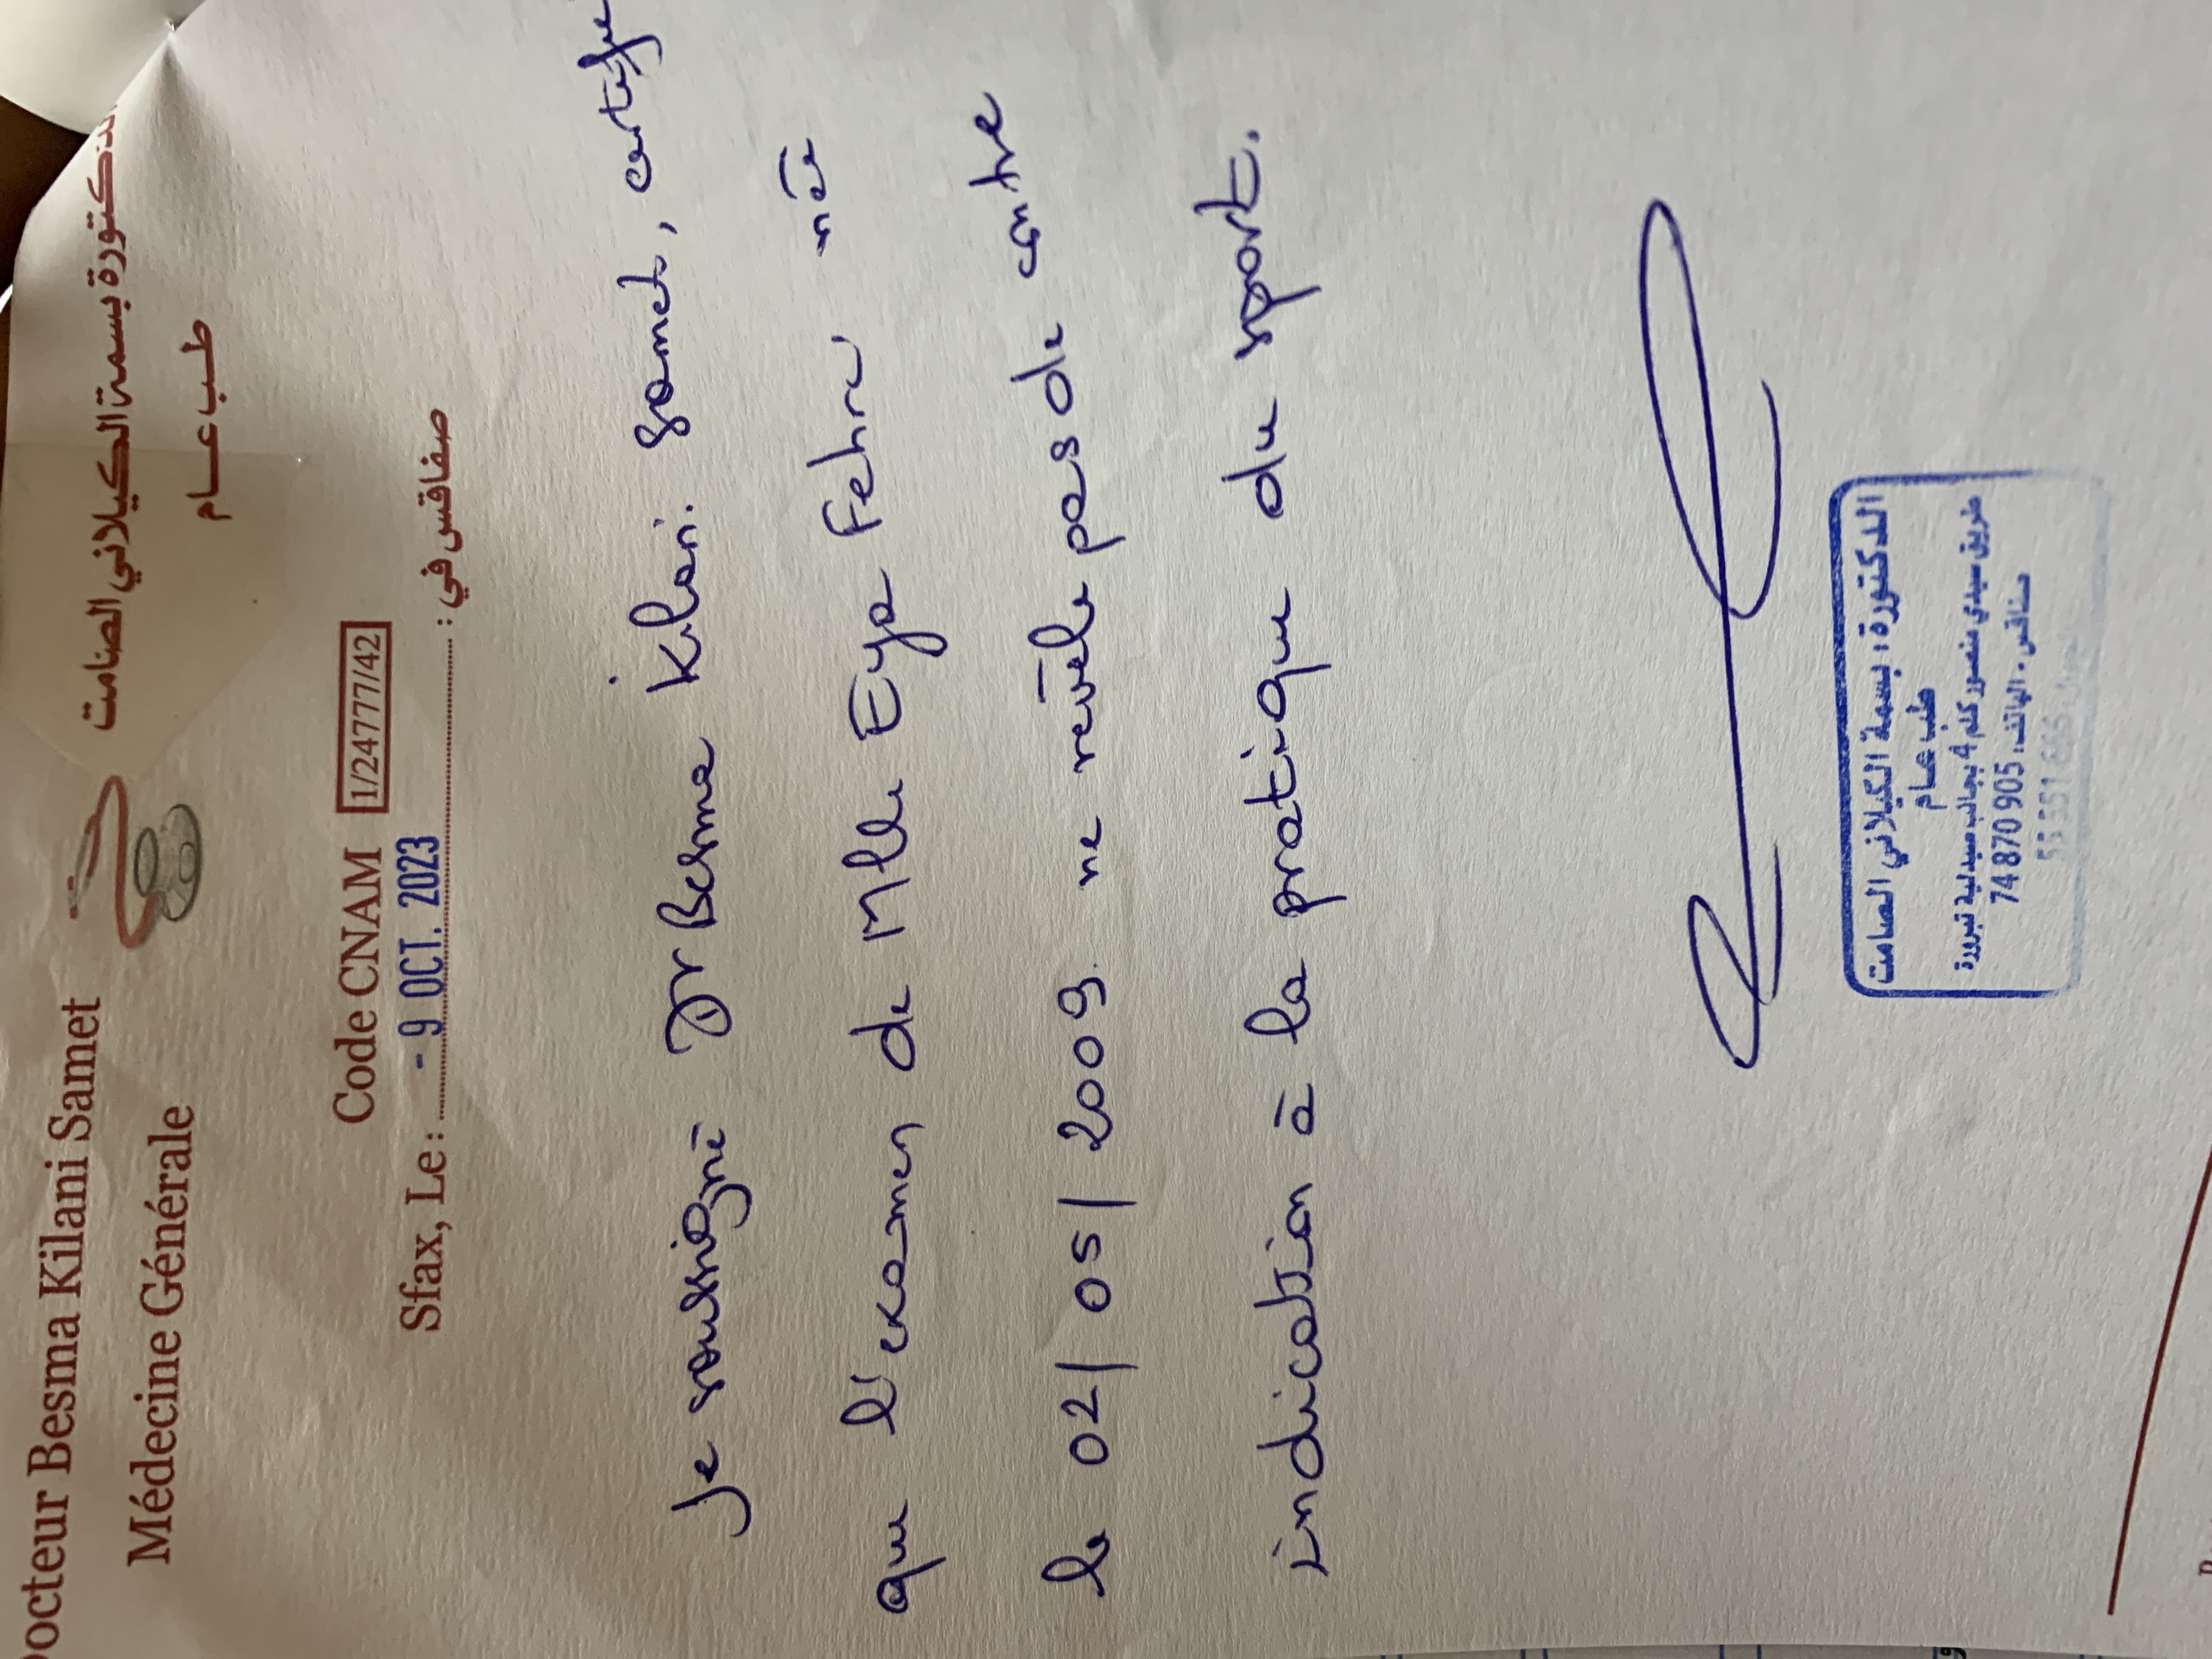 Docteur Besma Kilani Samet
الدكتورة بسمة الكيلاني الصامت
Médecine Générale
طب عام
Code CNAM 1/24777/42
Sfax, Le : - 9 OCT. 2023 صفاقس في :
Je soussigné Dr Besma Kilani Samet, certifie
que l'examen de Mlle Eya Fehri née
le 02/05/2009 ne révèle pas de contre
indication à la pratique du sport.
الدكتورة : بسمة الكيلاني الصامت
طب عام
طريق سيدي منصور كلم 4 بجانب صيدلية تبرورة
صفاقس - الهاتف : 74 870 905